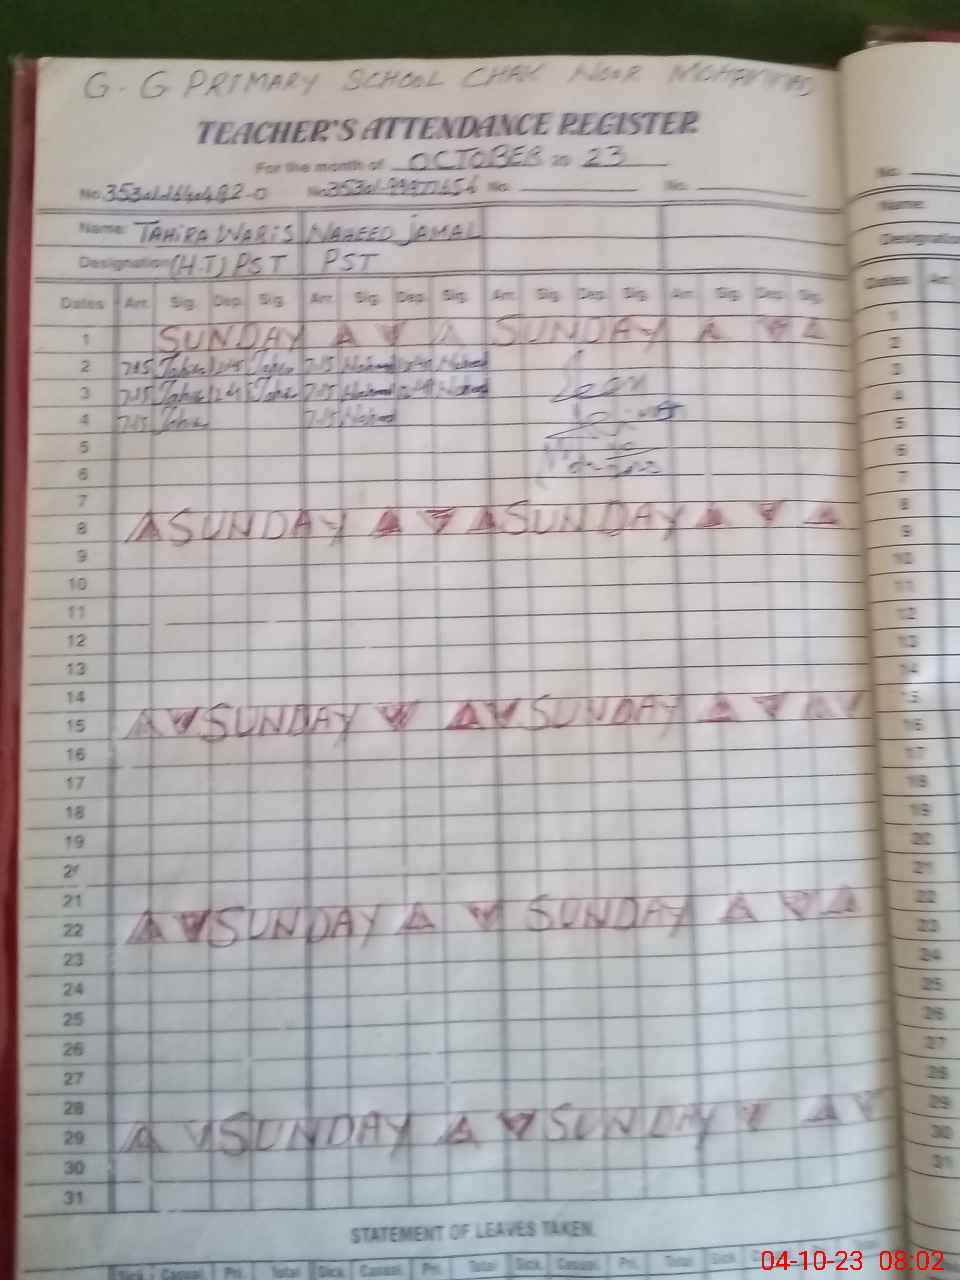 G. G PRIMARY SCHOOL CHAK NOOR MOHAMMAD
TEACHER'S ATTENDANCE REGISTER
For the month of OCTOBER 20 23
No. No. No. No.
Name: TAHIRA WARIS NAHEED JAMAL
Designation (H.T) PST PST
Dates Arr. Sig. Dep. Sig. Arr. Sig. Dep. Sig. Arr. Sig. Dep. Sig. Arr. Sig. Dep. Sig.
1 SUNDAY SUNDAY
2 7:15 7:15
3 7:15 7:15
4 7:15 7:15
5
6
7
8 SUNDAY SUNDAY
9
10
11
12
13
14
15 SUNDAY SUNDAY
16
17
18
19
21
22 SUNDAY SUNDAY
23
24
25
26
27
28
29 SUNDAY SUNDAY
30
31
STATEMENT OF LEAVES TAKEN.
Sick Casual Pri. Total Sick Casual Pri. Total Sick Casual Pri. Total
No.
Name:
Designation
Dates Arr.
1
2
3
4
5
6
7
8
9
10
11
12
13
14
15
16
17
18
19
20
21
22
23
24
25
26
27
28
29
30
31
04-10-23 08:02